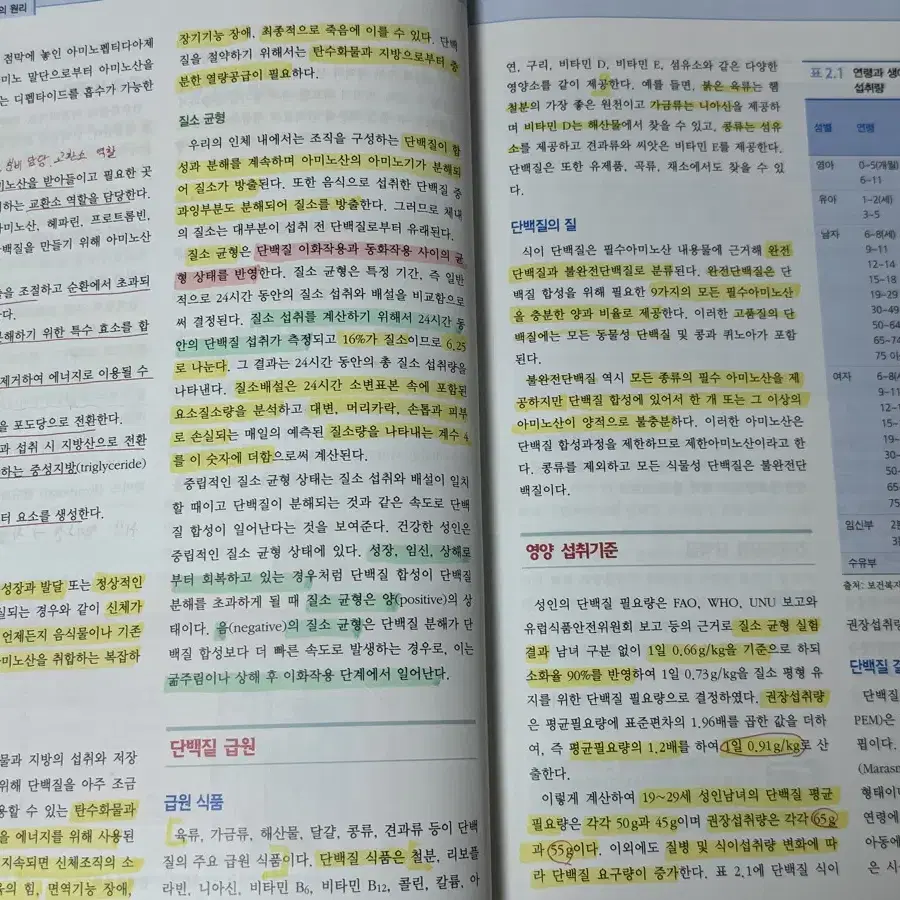 의 원리
점막에 놓인 아미노펩티다아제
미노 말단으로부터 아미노산을
는 디펩타이드를 흡수가 가능한
교환소 역할
미노산을 받아들이고 필요한 곳
하는 교환소 역할을 담당한다.
아미노산, 헤파린, 프로트롬빈,
백질을 만들기 위해 아미노산
을 조절하고 순환에서 초과되
다.
분해하기 위한 특수 효소를 합
제거하여 에너지로 이용될 수
을 포도당으로 전환한다.
과 섭취 시 지방산으로 전환
하는 중성지방(triglyceride)
터 요소를 생성한다.
성장과 발달 또는 정상적인
실되는 경우와 같이 신체가
언제든지 음식물이나 기존
아미노산을 취합하는 복잡하
물과 지방의 섭취와 저장
위해 단백질을 아주 조금
용할 수 있는 탄수화물과
을 에너지를 위해 사용된
지속되면 신체조직의 소
육의 힘, 면역기능 장애,
장기기능 장애, 최종적으로 죽음에 이를 수 있다. 단백
질을 절약하기 위해서는 탄수화물과 지방으로부터 충
분한 열량공급이 필요하다.
질소 균형
우리의 인체 내에서는 조직을 구성하는 단백질이 합
성과 분해를 계속하며 아미노산의 아미노기가 분해되
어 질소가 방출된다. 또한 음식으로 섭취한 단백질 중
과잉부분도 분해되어 질소를 방출한다. 그러므로 체내
의 질소는 대부분이 섭취 전 단백질로부터 유래된다.
질소 균형은 단백질 이화작용과 동화작용 사이의 균
형 상태를 반영한다. 질소 균형은 특정 기간, 즉 일반
적으로 24시간 동안의 질소 섭취와 배설을 비교함으로
써 결정된다. 질소 섭취를 계산하기 위해서 24시간 동
안의 단백질 섭취가 측정되고 16%가 질소이므로 6.25
로 나눈다. 그 결과는 24시간 동안의 총 질소 섭취량을
나타낸다. 질소배설은 24시간 소변표본 속에 포함된
요소질소량을 분석하고 대변, 머리카락, 손톱과 피부
로 손실되는 매일의 예측된 질소량을 나타내는 계수 4
를 이 숫자에 더함으로써 계산된다.
중립적인 질소 균형 상태는 질소 섭취와 배설이 일치
할 때이고 단백질이 분해되는 것과 같은 속도로 단백
질 합성이 일어난다는 것을 보여준다. 건강한 성인은
중립적인 질소 균형 상태에 있다. 성장, 임신, 상해로
부터 회복하고 있는 경우처럼 단백질 합성이 단백질
분해를 초과하게 될 때 질소 균형은 양(positive)의 상
태이다. 음(negative)의 질소 균형은 단백질 분해가 단
백질 합성보다 더 빠른 속도로 발생하는 경우로, 이는
굶주림이나 상해 후 이화작용 단계에서 일어난다.
단백질 급원
급원 식품
육류, 가금류, 해산물, 달걀, 콩류, 견과류 등이 단백
질의 주요 급원 식품이다. 단백질 식품은 철분, 리보플
라빈, 니아신, 비타민 B6, 비타민 B12, 콜린, 칼륨, 아
연, 구리, 비타민 D, 비타민 E, 섬유소와 같은 다양한
영양소를 같이 제공한다. 예를 들면, 붉은 육류는 헴
철분의 가장 좋은 원천이고 가금류는 니아신을 제공하
며 비타민 D는 해산물에서 찾을 수 있고, 콩류는 섬유
소를 제공하고 견과류와 씨앗은 비타민 E를 제공한다.
단백질은 또한 유제품, 곡류, 채소에서도 찾을 수 있
다.
단백질의 질
식이 단백질은 필수아미노산 내용물에 근거해 완전
단백질과 불완전단백질로 분류된다. 완전단백질은 단
백질 합성을 위해 필요한 9가지의 모든 필수아미노산
을 충분한 양과 비율로 제공한다. 이러한 고품질의 단
백질에는 모든 동물성 단백질 및 콩과 퀴노아가 포함
된다.
불완전단백질 역시 모든 종류의 필수 아미노산을 제
공하지만 단백질 합성에 있어서 한 개 또는 그 이상의
아미노산이 양적으로 불충분하다. 이러한 아미노산은
단백질 합성과정을 제한하므로 제한아미노산이라고 한
다. 콩류를 제외하고 모든 식물성 단백질은 불완전단
백질이다.
영양 섭취기준
성인의 단백질 필요량은 FAO, WHO, UNU 보고와
유럽식품안전위원회 보고 등의 근거로 질소 균형 실험
결과 남녀 구분 없이 1일 0.66g/kg을 기준으로 하되
소화율 90%를 반영하여 1일 0.73g/kg을 질소 평형 유
지를 위한 단백질 필요량으로 결정하였다. 권장섭취량
은 평균필요량에 표준편차의 1.96배를 곱한 값을 더하
여, 즉 평균필요량의 1.2배를 하여 1일 0.91g/kg로 산
출한다.
이렇게 계산하여 19~29세 성인남녀의 단백질 평균
필요량은 각각 50g과 45g이며 권장섭취량은 각각 65g
과 55g이다. 이외에도 질병 및 식이섭취량 변화에 따
라 단백질 요구량이 증가한다. 표 2.1에 단백질 식이
표 2.1 연령과 생애
섭취량
성별 연령
영아 0~5(개월)
6~11
유아 1~2(세)
3~5
남자 6~8(세)
9~11
12~14
15~18
19~29
30~49
50~64
65~74
75 이상
여자 6~8(세
9~11
12~1
15~
19~
30~
50~
65~
75
임신부 2분
3분
수유부
출처: 보건복지
권장섭취량
단백질 결
단백질
PEM)은
핍이다.
(Marasm
형태이다
연령에
아동에
은 시